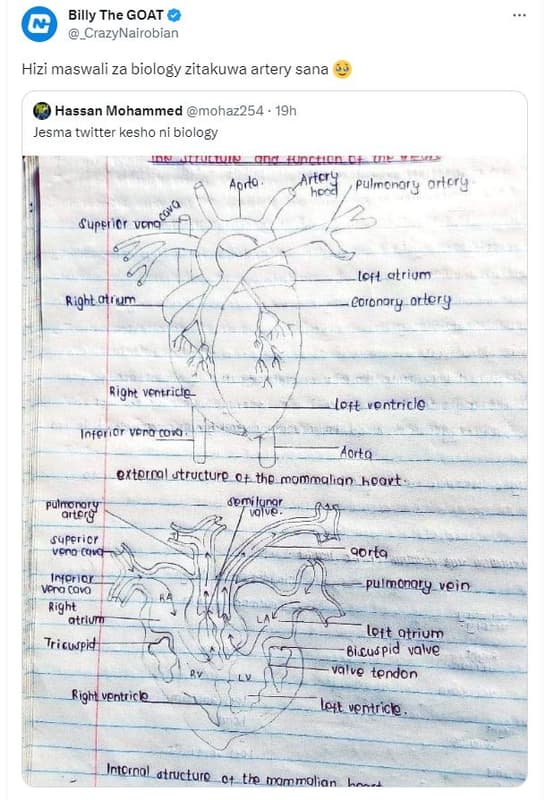 Billy The GOAT
@_CrazyNairobian
Hizi maswali za biology zitakuwa artery sana 🥹
Hassan Mohammed @mohaz254 · 19h
Jesma twitter kesho ni biology
The structure and function of the
Aorta.
Artery
hood
Pulmonary artery.
Superior vena cava
left atrium
Right atrium
coronary artery
Right ventricle
left ventricle
Inferior vena cava.
Aorta
external structure of the mammalian heart.
pulmonary
artery
semilunar
valve.
superior
vena cava
aorta
Inferior
vena cava
pulmonary vein
RA
Right
atrium
LA
left atrium
Tricuspid
Bicuspid valve
valve tendon
RV
LV
Right ventricle
left ventricle.
Internal structure of the mammalian heart